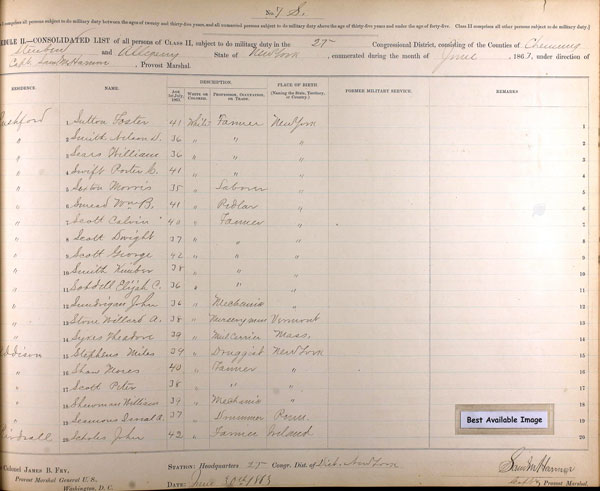 No. 7 S.
comprises all persons subject to do military duty between the ages of twenty and thirty-five years, and all unmarried persons subject to do military duty above the age of thirty-five years and under the age of forty-five. Class II comprises all other persons subject to do military duty.
DULE II.—CONSOLIDATED LIST of all persons of CLASS II, subject to do military duty in the 27th Congressional District, consisting of the Counties of Chemung
Steuben and Allegany State of New York, enumerated during the month of June, 1863, under direction of
Capt Saml M Harmon, Provost Marshal.
RESIDENCE. NAME. DESCRIPTION. PLACE OF BIRTH. FORMER MILITARY SERVICE. REMARKS.
AGE 1st July, 1863. WHITE OR COLORED. PROFESSION, OCCUPATION, OR TRADE. (Naming the State, Territory, or Country.)
1 Sutton Foster 41 White Farmer New York 1
" 2 Smith Nelson D. 36 " " " 2
" 3 Sears William 36 " " " 3
" 4 Swift Porter C. 41 " " " 4
" 5 Sexton Morris 35 " Laborer " 5
" 6 Smead Wm B. 41 " Pedlar " 6
" 7 Scott Calvin 40 " Farmer " 7
" 8 Scott Dwight 37 " " " 8
" 9 Scott George 42 " " " 9
" 10 Smith 38 " " " 10
" 11 Elijah C. 36 " " " 11
" 12 John 36 " Mechanic " 12
" 13 Stone Willard A. 38 " Nurseryman Vermont 13
" 14 Sykes Theodore 39 " Mail Carrier Mass. 14
Addison 15 Stephens Miles 39 " Druggist New York 15
" 16 Shaw Moses 40 " Farmer " 16
" 17 Scott Peter 38 " " " 17
" 18 Showman William 39 " Mechanic " 18
" 19 37 " Drummer Penn. 19
Birdsall 20 Scholes John 42 " Farmer Ireland 20
Best Available Image
Colonel JAMES B. FRY,
Provost Marshal General U. S.,
Washington, D. C.
STATION: Headquarters 27 Congr. Dist. of New York
DATE: June 30th 1863
Saml M Harmon
Capt & Provost Marshal.